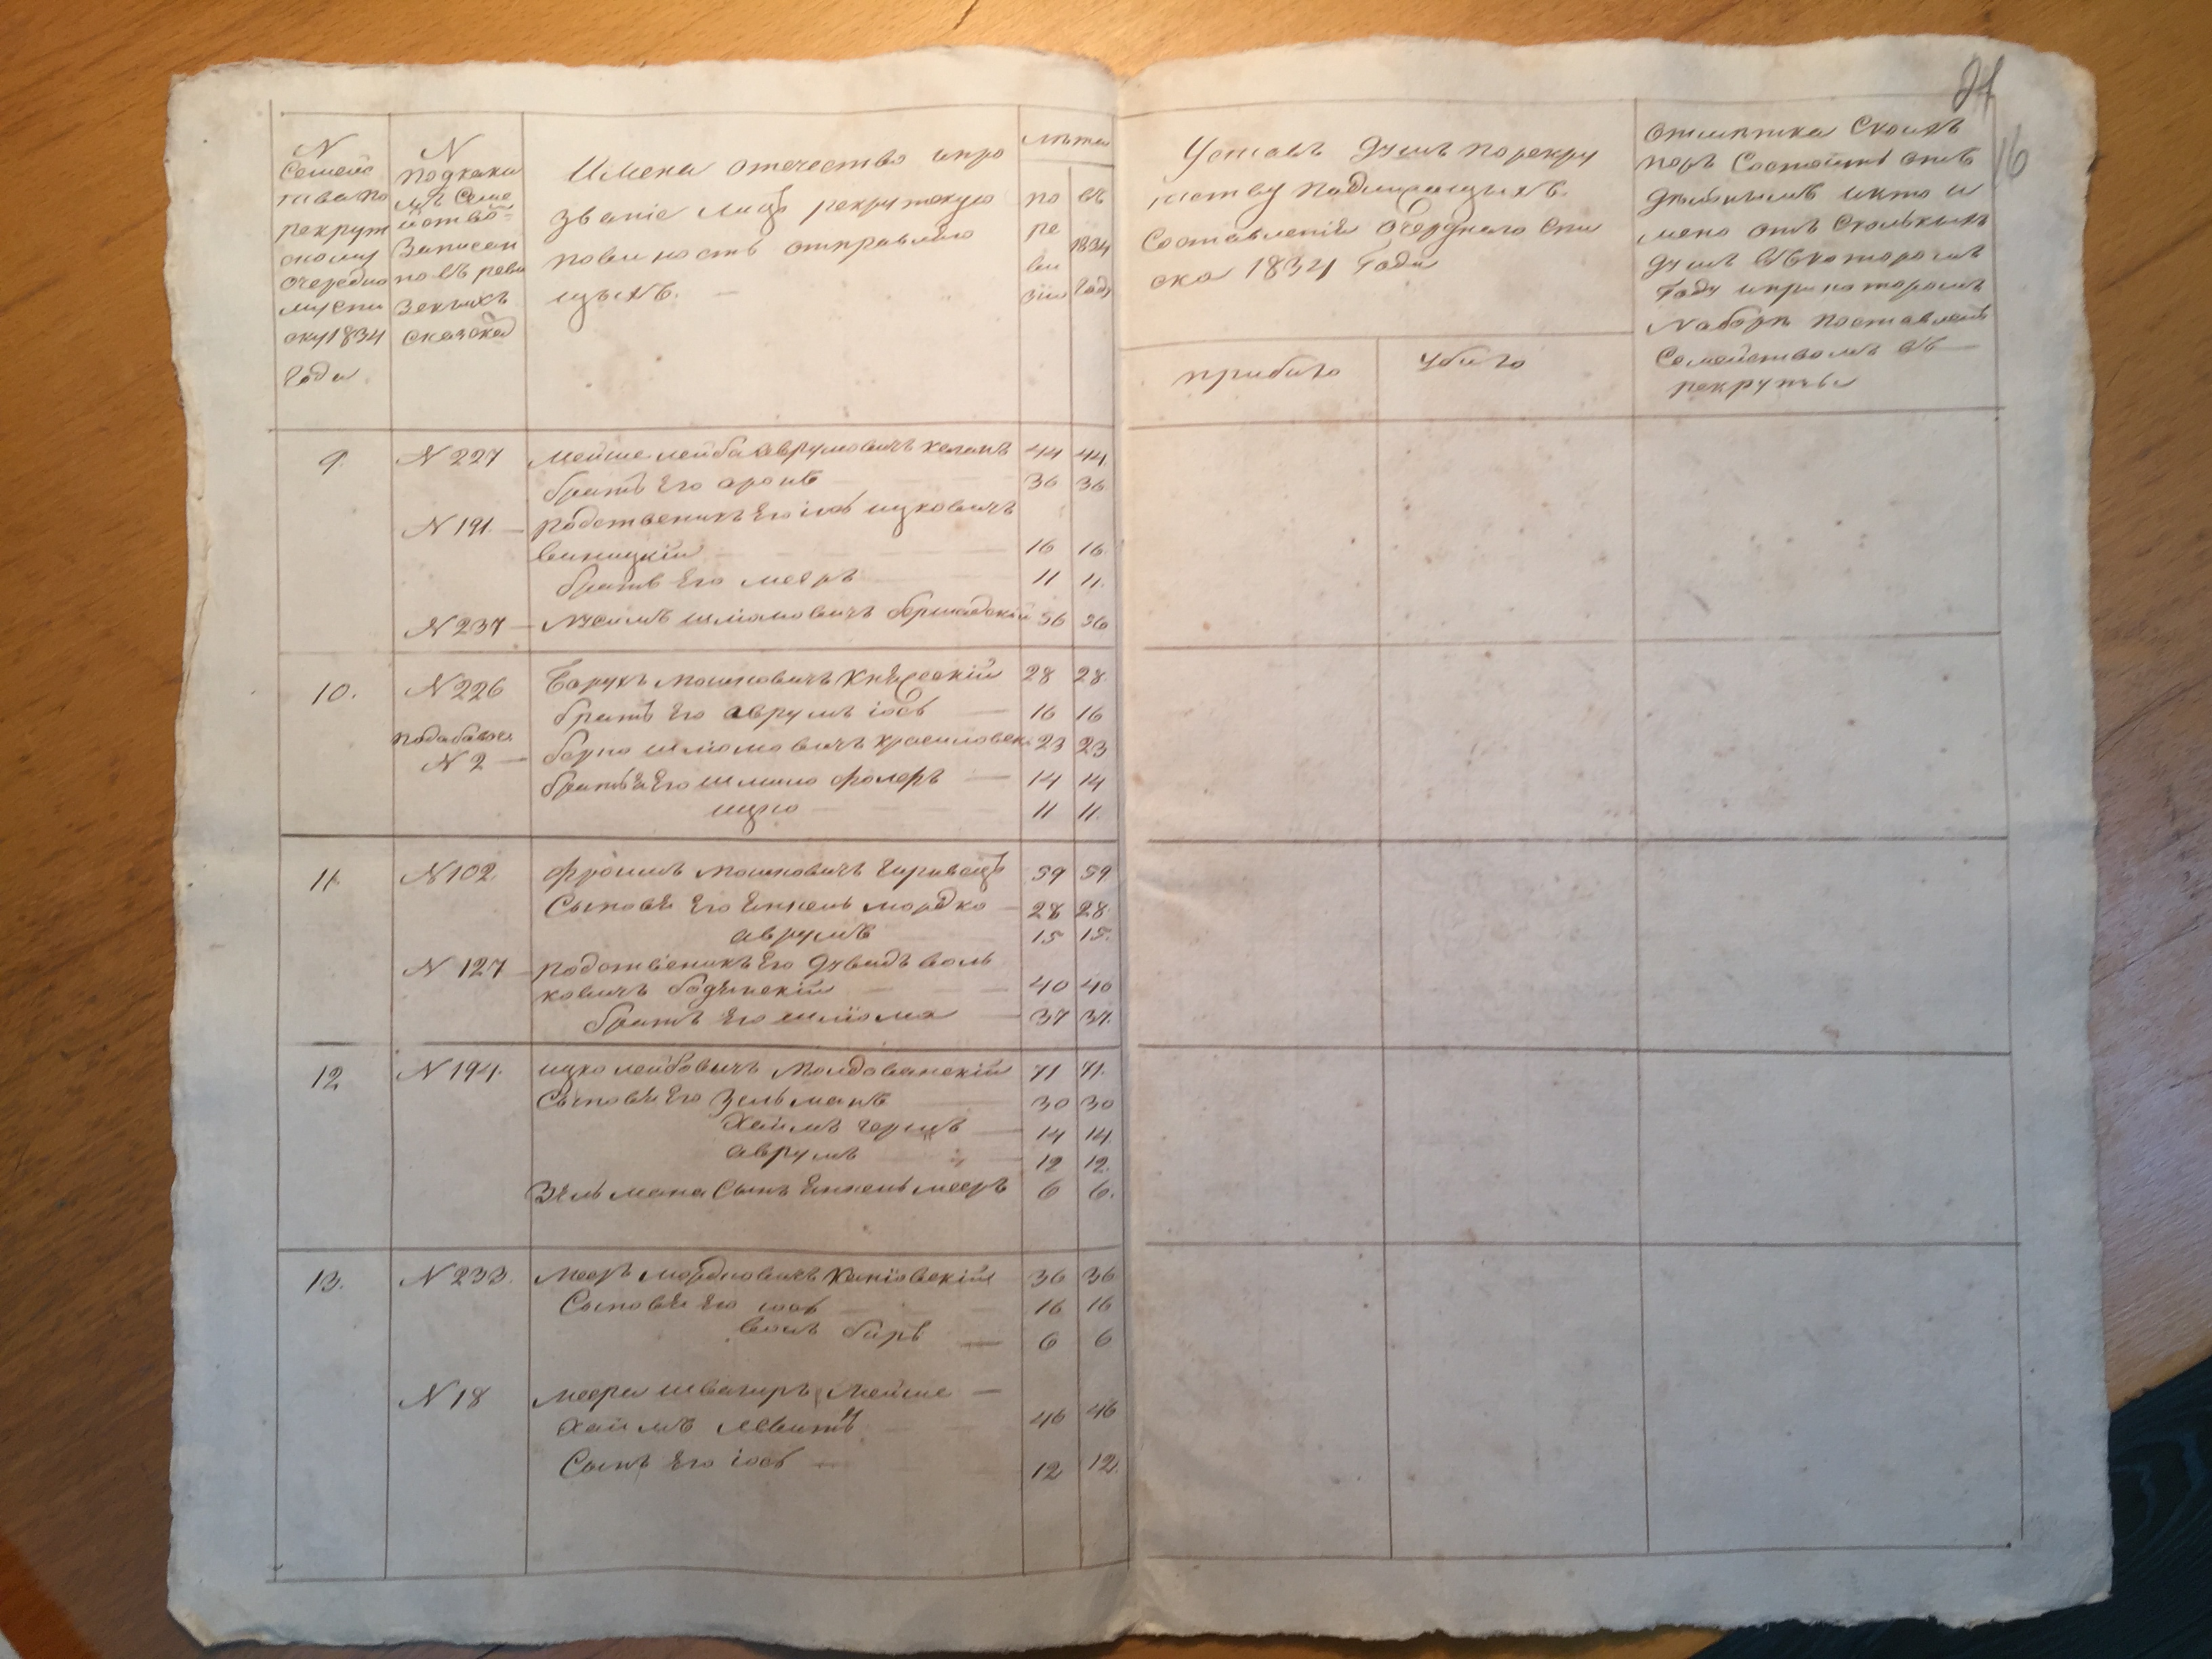 N
Семей
ства по
рекрут
скому
очередно
му спи
ску 1834
Года
N
под каки
мъ Семе
йство
Записан
но въ реви
зскихъ
сказска
Имена отечество и про
звание лицъ рекрутскую
повиность отправляю
щихъ. —
Лѣта
по
ре
ви
зіи
въ
1834
Году
24
16
Уставъ душъ по рекру
тству подлежащихъ.
Составленія очереднаго спи
ска 1834 Года
прибыло
убыло
отмѣтка Скольк
поръ Состоитъ
душъ въ которомъ
Году и при которомъ
Наборѣ поставленъ
Семействомъ въ
рекруты
9. N 227 Мейше лейба аврумовичъ 44 44.
братъ Его аронъ 36 36
N 191. — родственикъ Его іось ицковичъ
виницкій 16 16.
братъ Его мееръ 11 11.
N 237 — Нусимъ шліомовичъ бершадскій 56 56
10. N 226 Барухъ мошковичъ Княжескій 28 28.
братъ Его аврумъ іось — 16 16
по добавоч.
N 2 — берко шліомовичъ красиловск 23 23
братья Его шлиомо — 14 14
ицко 11 11.
11. N 102. Фроимъ мошковичъ 59 59
Сыновья Его Янкель мордко — 28 28.
аврумъ 15 15.
N 127 — родственикъ Его Дувидъ воль
ковичъ 40 40
братъ Его шліома — 37 37.
12 N 194. ицко лейбовичъ Молдованскій 71 71.
Сыновья Его Зельманъ 30 30
Хаимъ гершъ — 14 14.
аврумъ 12 12.
Зельмана Сынъ Янкель мееръ 6 6.
13. N 233. Мееръ мордковичъ Каніовскій 36 36
Сыновья Его іось 16 16
волъ беръ — 6 6
N 18 меера швагиръ Мейше —
Хаимъ Левитъ 46 46
Сынъ Его іось — 12 12.